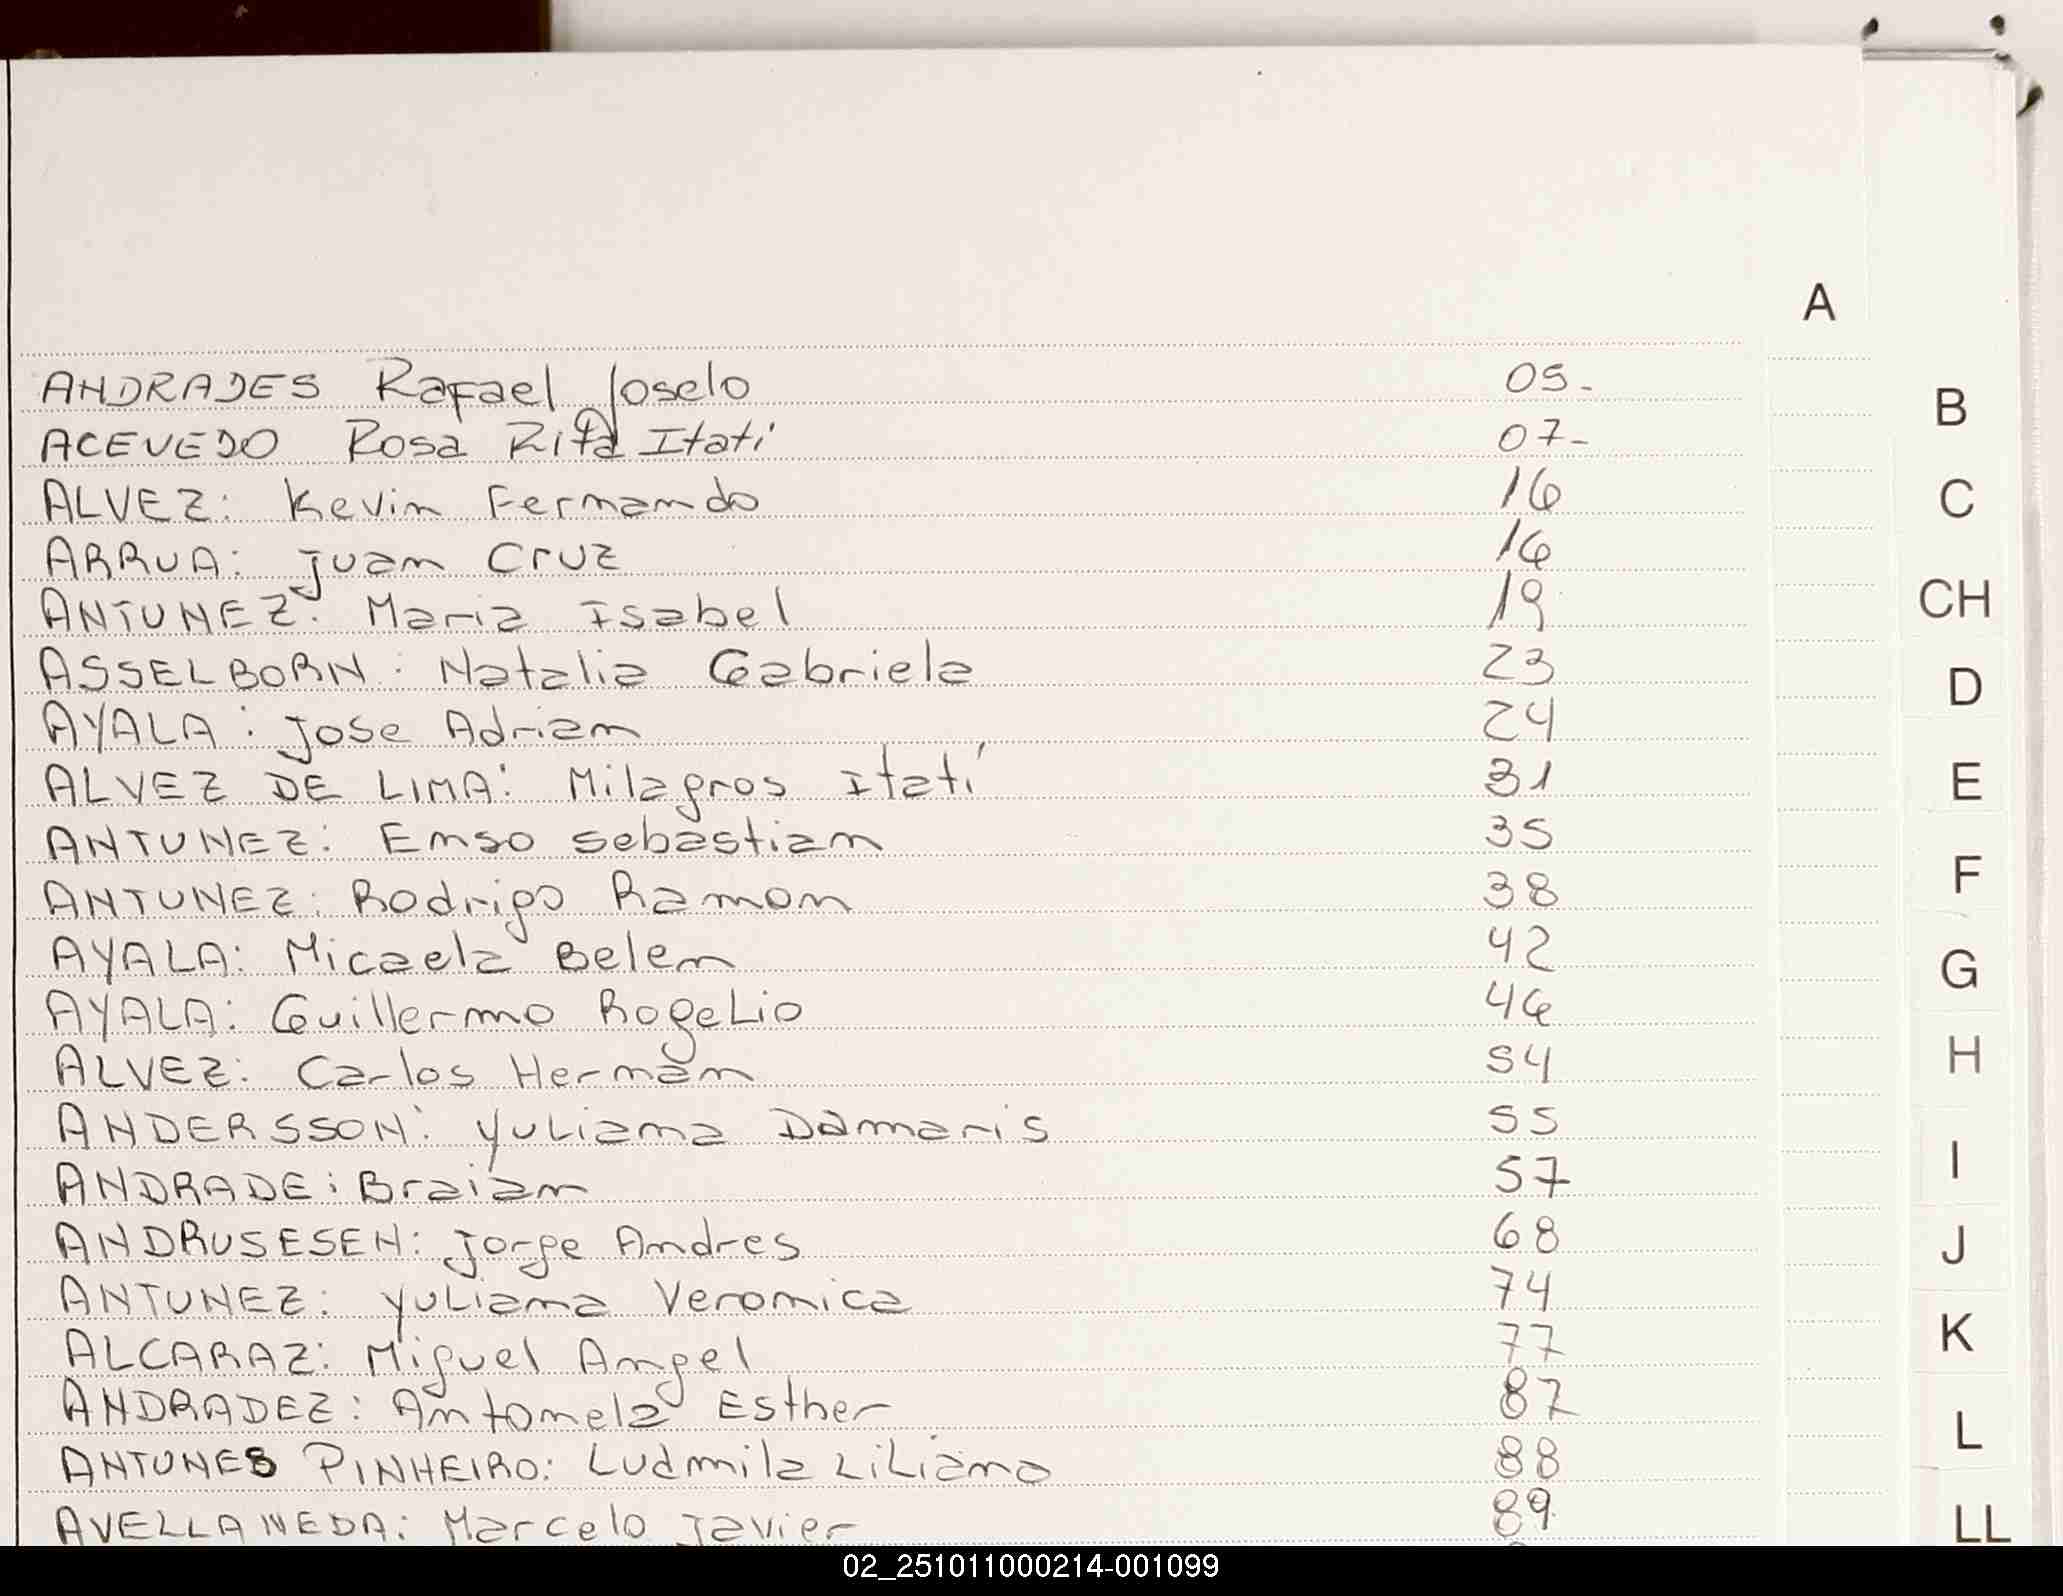 A
ANDRADES Rafael Joselo 05-
ACEVEDO Rosa Rita Itatí 07-
ALVEZ: Kevin Fernando 16
ARRUA: Juan Cruz 16
ANTUNEZ: Maria Isabel 19
ASSELBORN: Natalia Gabriela 23
AYALA: Jose Adrian 24
ALVEZ DE LIMA: Milagros Itatí 31
ANTUNEZ: Enso Sebastian 35
ANTUNEZ: Rodrigo Ramon 38
AYALA: Micaela Belen 42
AYALA: Guillermo Rogelio 46
ALVEZ: Carlos Hernan 54
ANDERSSON: Yuliana Damaris 55
ANDRADE: Braian 57
ANDRUSESEN: Jorge Andres 68
ANTUNEZ: Yuliana Veronica 74
ALCARAZ: Miguel Angel 77
ANDRADEZ: Antonela Esther 87
ANTUNES PINHEIRO: Ludmila Liliana 88
AVELLANEDA: Marcelo Javier 89
B
C
CH
D
E
F
G
H
I
J
K
L
LL
02_251011000214-001099